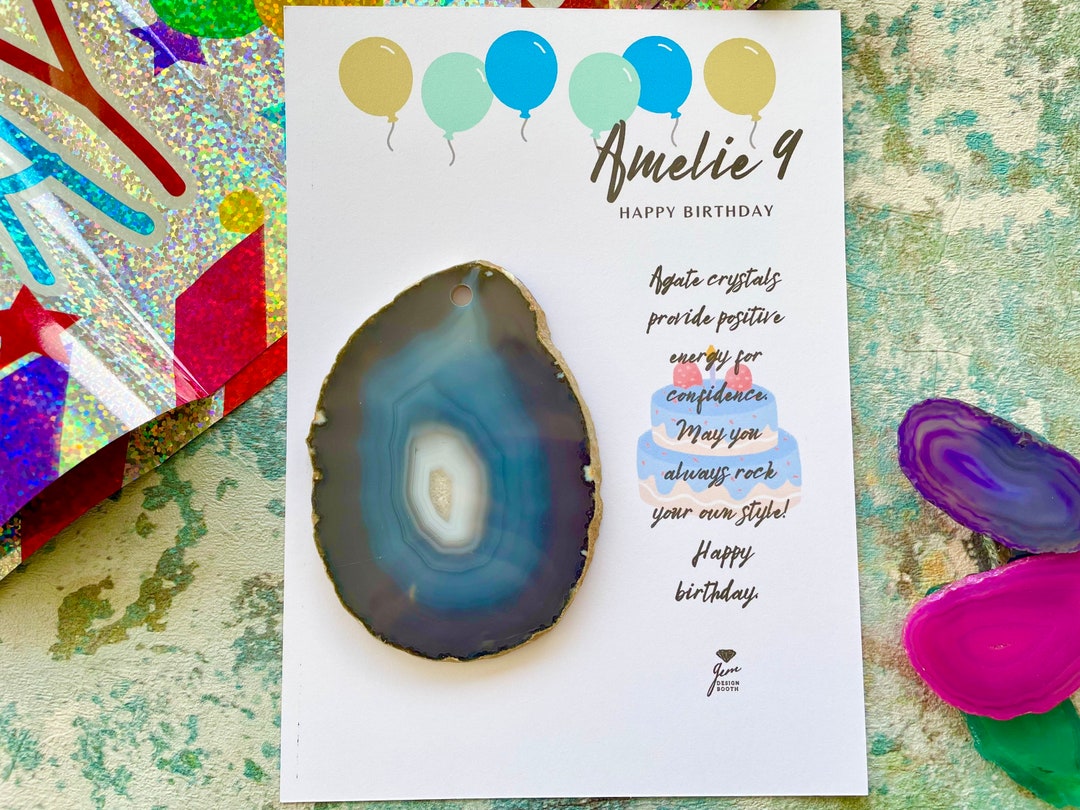 Amelie 9
HAPPY BIRTHDAY
Agate crystals
provide positive
energy for
confidence.
May you
always rock
your own style!
Happy
birthday.
gem
DESIGN
BOOTH